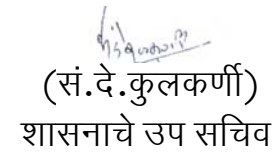 (सं.दे.कुलकर्णी)
शासनाचे उप सचिव